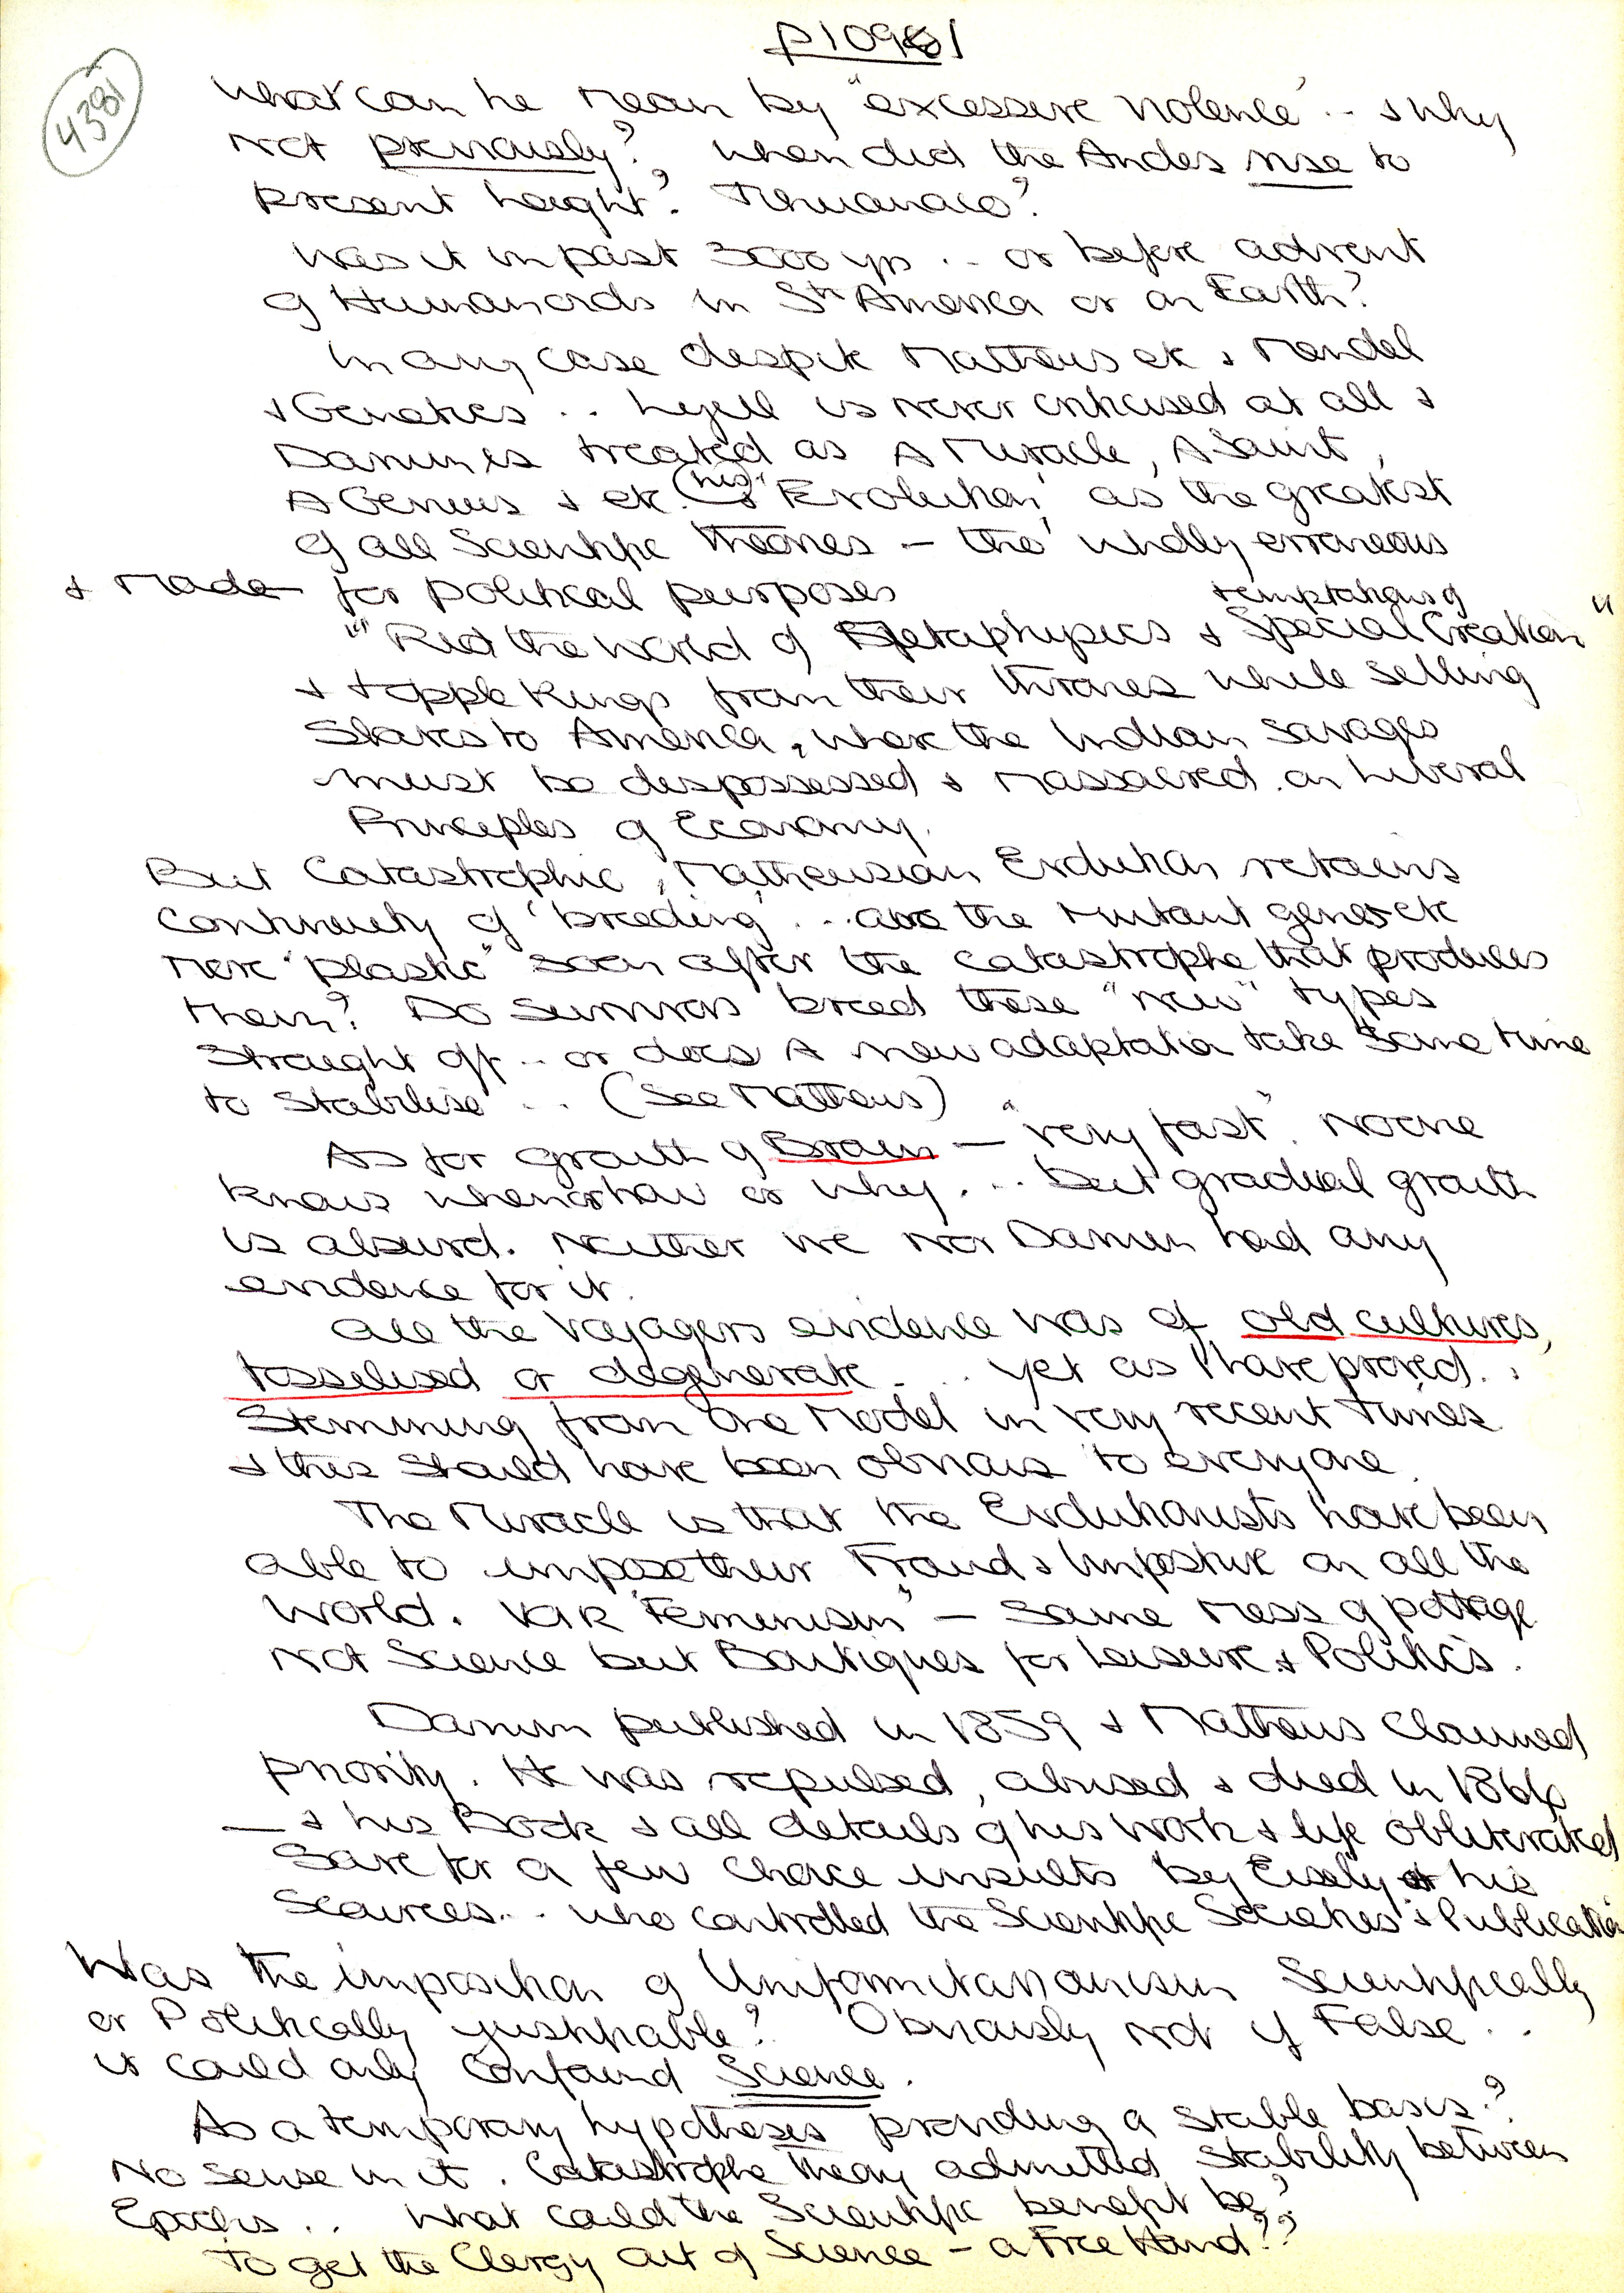 p10981
4381
What can he mean by "excessive violence" .. & why
not previously? When did the Andes rise to
present height? Tihuanaco?
Was it in past 3000 yrs .. or before advent
of Humanoids in Sth America or on Earth?
In any case despite Matthews etc & Mendel
& Genetics .. Lyell is never criticised at all &
Darwin is treated as A Miracle, A Saint,
A Genius & etc. (his) "Evolution" as the greatest
of all Scientific Theories — the wholly erroneous
& made for political purposes
temptations of
"Rid the World of Metaphysics & Special Creation"
& topple Kings from their thrones while selling
Slaves to America, where the Indian Savages
must be dispossessed & Massacred on Liberal
Principles of Economy.
But Catastrophic, Mathewsian Evolution retains
Continuity of 'breeding' ... are the Mutant genes etc
more "plastic" soon after the catastrophe that produces
them? Do survivors breed these "new" types
straight off .. or does A new adaptation take some time
to stabilise .. (See Matthews)
As for growth of Brain — "very fast". Noone
knows when or how or why ... but gradual growth
is absurd. Neither we nor Darwin had any
evidence for it.
All the Voyagers evidence was of old cultures,
fossilised or degenerate ... yet as I have proved ..
Stemming from One Model in very recent Times
& this should have been obvious to everyone.
The Miracle is that the Evolutionists have been
able to impose their Fraud & Imposture on all the
World. Like "Feminism" — same mess of pottage
not Science but Boutiques for Leisure & Politics.
Darwin published in 1859 & Matthews Claimed
priority. He was repulsed, abused & died in 1864
— & his Book & all details of his work & life obliterated
Save for a few choice insults by Eisely & his
Sources... who controlled the Scientific Societies & Publication
Was the imposition of Uniformitarianism Scientifically
or Politically justifiable? Obviously not if False ..
it could only confound Science.
As a temporary hypothesis providing a stable basis?
No sense in it. Catastrophe Theory admitted Stability between
Epochs .. What could the Scientific benefit be?
To get the Clergy out of Science — a Free Hand??